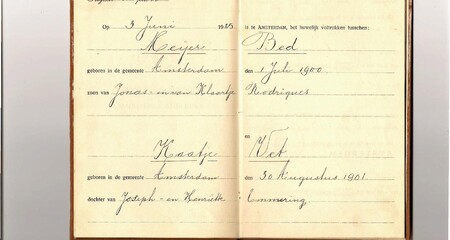 Op 3 Juni 1925 is te AMSTERDAM, het huwelijk voltrokken tusschen:
Meijer Bed
geboren in de gemeente Amsterdam den 1 Juli 1900
zoon van Jonas - en van Klaartje Rodrigues
en
Kaatje Vet
geboren in de gemeente Amsterdam den 30 Augustus 1901.
dochter van Joseph - en Henriette Emmering